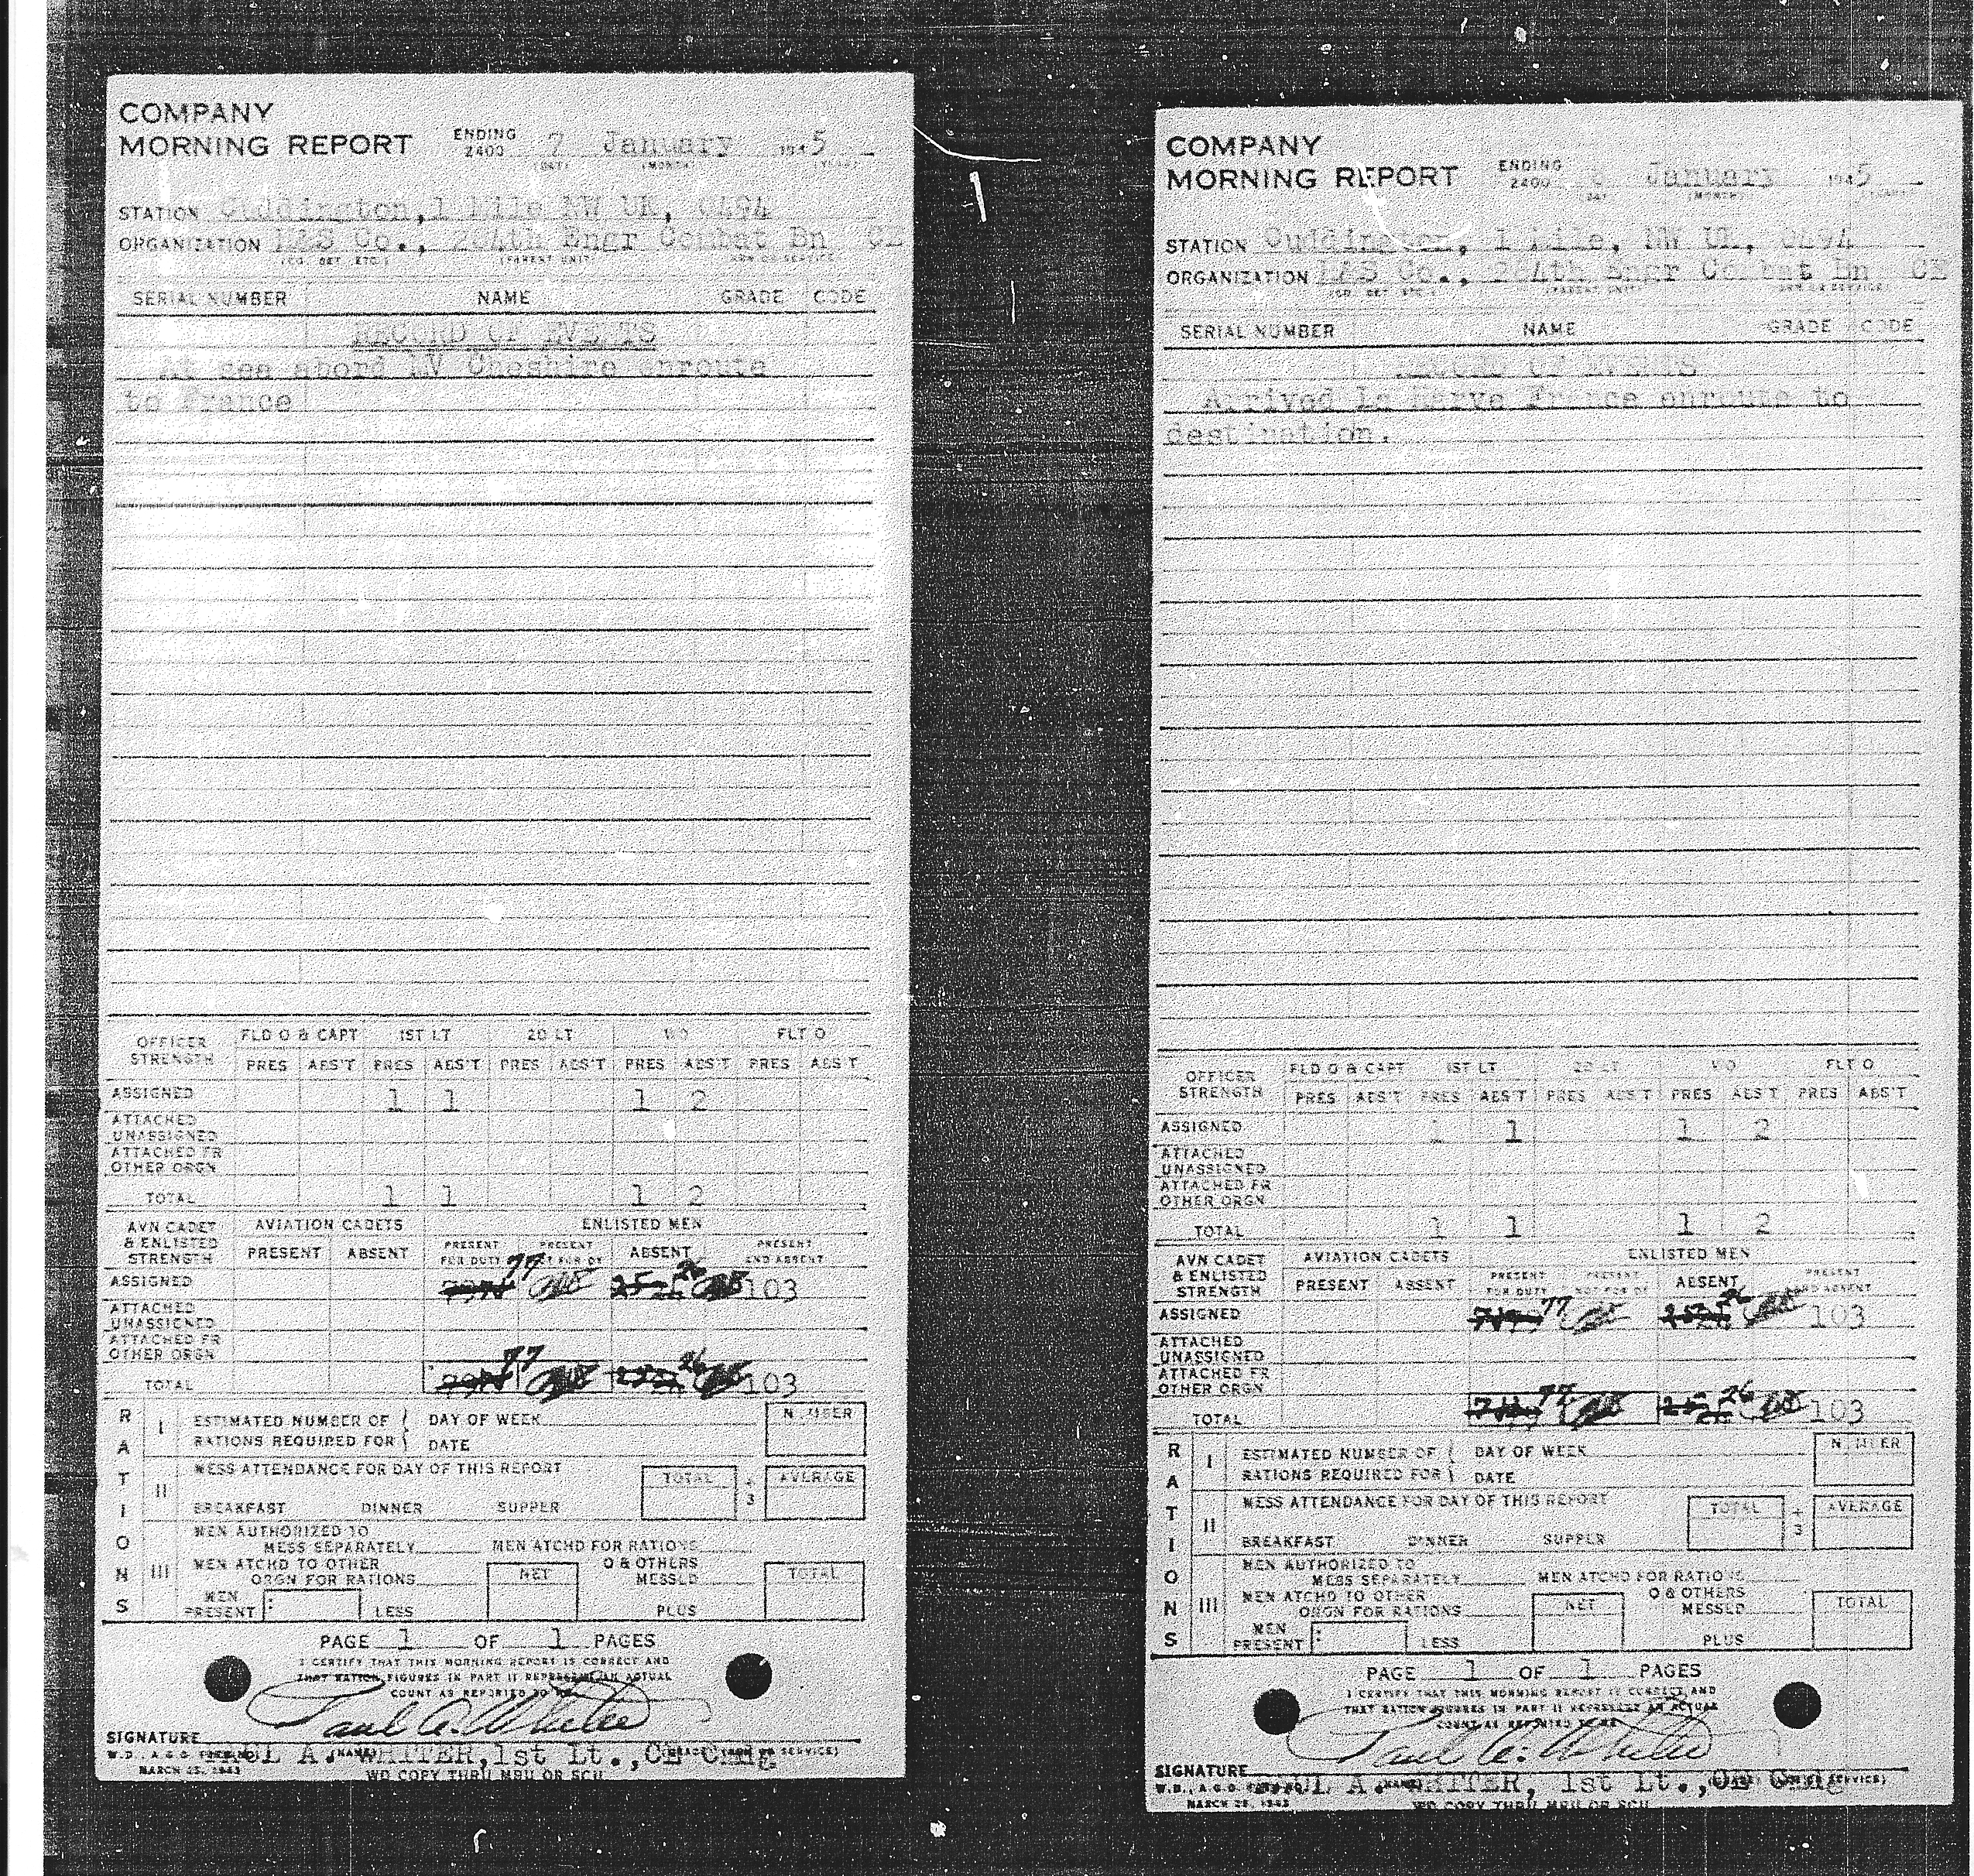 COMPANY
MORNING REPORT ENDING 2400 7 January 1945
(DAY) (MONTH) (YEAR)
STATION Cuddington, 1 Mile NW UK, 0494
ORGANIZATION H&S Co., 284th Engr Combat Bn CE
(CO. DET. ETC.) (PARENT UNIT) (ARM OR SERVICE)
SERIAL NUMBER NAME GRADE CODE
RECORD OF EVENTS
At sea abord MV Cheshire enroute
to France
OFFICER STRENGTH FLD O & CAPT 1ST LT 2D LT WO FLT O
PRES ABS'T PRES ABS'T PRES ABS'T PRES ABS'T PRES ABS'T
ASSIGNED 1 1 1 2
ATTACHED
UNASSIGNED
ATTACHED FR
OTHER ORGN
TOTAL 1 1 1 2
AVN CADET & ENLISTED STRENGTH AVIATION CADETS ENLISTED MEN
PRESENT ABSENT PRESENT FOR DUTY PRESENT NOT FOR DY ABSENT PRESENT AND ABSENT
ASSIGNED 77 26 103
ATTACHED
UNASSIGNED
ATTACHED FR
OTHER ORGN
TOTAL 77 26 103
RATIONS
I ESTIMATED NUMBER OF DAY OF WEEK NUMBER
RATIONS REQUIRED FOR DATE
II MESS ATTENDANCE FOR DAY OF THIS REPORT TOTAL ÷ 3 AVERAGE
BREAKFAST DINNER SUPPER
III MEN AUTHORIZED TO
MESS SEPARATELY MEN ATCHD FOR RATIONS
MEN ATCHD TO OTHER O & OTHERS
ORGN FOR RATIONS NET MESSED TOTAL
MEN
PRESENT LESS PLUS
PAGE 1 OF 1 PAGES
I CERTIFY THAT THIS MORNING REPORT IS CORRECT AND
THAT RATION FIGURES IN PART II REPRESENT AN ACTUAL
COUNT AS REPORTED TO ME
Paul A. Whiter
SIGNATURE
PAUL A. WHITER, 1st Lt., CE Cmdg
W.D., A.G.O. FORM NO. 1
MARCH 25, 1943
WD COPY THRU MRU OR SCU
COMPANY
MORNING REPORT ENDING 2400 January 1945
(DAY) (MONTH) (YEAR)
STATION Cuddington, 1 Mile, NW UK, 0494
ORGANIZATION H&S Co., 284th Engr Combat Bn CE
(CO. DET. ETC.) (PARENT UNIT) (ARM OR SERVICE)
SERIAL NUMBER NAME GRADE CODE
RECORD OF EVENTS
Arrived La Harve France enroute to
destination.
OFFICER STRENGTH FLD O & CAPT 1ST LT 2D LT WO FLT O
PRES ABS'T PRES ABS'T PRES ABS'T PRES ABS'T PRES ABS'T
ASSIGNED 1 1 1 2
ATTACHED
UNASSIGNED
ATTACHED FR
OTHER ORGN
TOTAL 1 1 1 2
AVN CADET & ENLISTED STRENGTH AVIATION CADETS ENLISTED MEN
PRESENT ABSENT PRESENT FOR DUTY PRESENT NOT FOR DY ABSENT PRESENT AND ABSENT
ASSIGNED 77 26 103
ATTACHED
UNASSIGNED
ATTACHED FR
OTHER ORGN
TOTAL 77 26 103
RATIONS
I ESTIMATED NUMBER OF DAY OF WEEK NUMBER
RATIONS REQUIRED FOR DATE
II MESS ATTENDANCE FOR DAY OF THIS REPORT TOTAL ÷ 3 AVERAGE
BREAKFAST DINNER SUPPER
III MEN AUTHORIZED TO
MESS SEPARATELY MEN ATCHD FOR RATIONS
MEN ATCHD TO OTHER O & OTHERS
ORGN FOR RATIONS NET MESSED TOTAL
MEN
PRESENT LESS PLUS
PAGE 1 OF 1 PAGES
I CERTIFY THAT THIS MORNING REPORT IS CORRECT AND
THAT RATION FIGURES IN PART II REPRESENT AN ACTUAL
COUNT AS REPORTED TO ME
Paul A. Whiter
SIGNATURE
PAUL A. WHITER, 1st Lt., CE Cmdg
W.D., A.G.O. FORM NO. 1
MARCH 25, 1943
WD COPY THRU MRU OR SCU